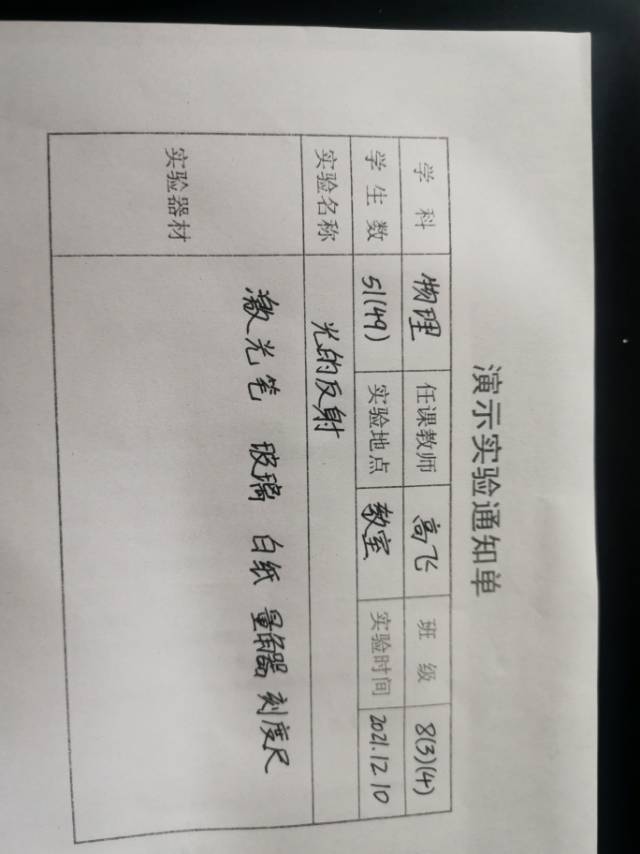 演示实验通知单
学 科 物理 任课教师 高飞 班 级 8(3)(4)
学 生 数 51(49) 实验地点 教室 实验时间 2021.12.10
实验名称 光的反射
实验器材 激光笔 玻璃 白纸 量角器 刻度尺